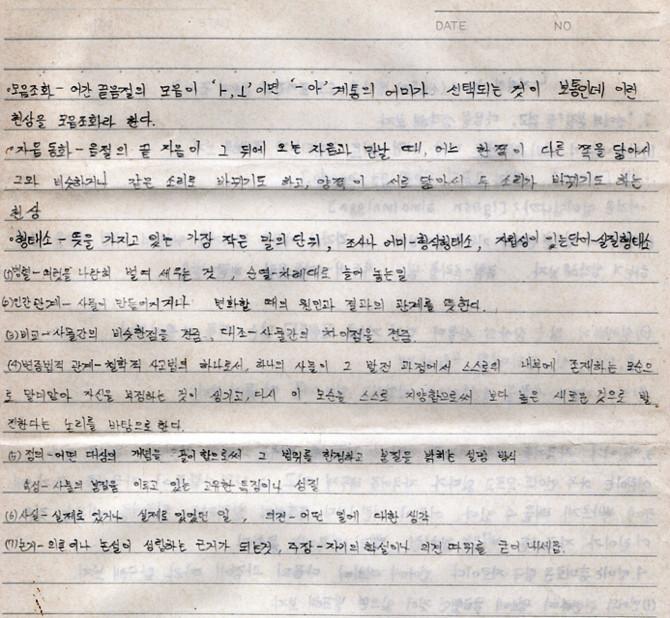 DATE NO
·모음조화 - 어간 끝음절의 모음이 'ㅏ,ㅗ'이면 '-아' 계통의 어미가 선택되는 것이 보통인데 이런
현상을 모음조화라 한다.
·자음동화 - 음절의 끝 자음이 그 뒤에 오는 자음과 만날 때, 어느 한쪽이 다른 쪽을 닮아서
그와 비슷하거나 같은 소리로 바뀌기도 하고, 양쪽이 서로 닮아서 두 소리가 바뀌기도 하는
현상
·형태소 - 뜻을 가지고 있는 가장 작은 말의 단위, 조사나 어미-형식형태소, 자립성이 있는단어-실질형태소
(1)병렬-의견을 나란히 벌여 세우는 것, 순열-차례대로 늘어 놓는일
(2)인간단계-사물이 만들어지거나 변화할 때의 원인과 결과의 관계를 뜻한다.
(3)비교-사물간의 비슷한점을 견줌, 대조-사물간의 차이점을 견줌
(4)변증법적 관계-철학적 사고법의 하나로서, 하나의 사물이 그 발전 과정에서 스스로의 내부에 존재하는 모순으
로 말미암아 자신을 부정하는 것이 생기고, 다시 이 모순을 스스로 지양함으로써 보다 높은 새로운 것으로 발
전한다는 논리를 바탕으로 한다.
(5)정의-어떤 대상의 개념을 풀이함으로써 그 범위를 한정하고 본질을 밝히는 설명 방식
속성-사물의 본질을 이루고 있는 고유한 특징이나 성질
(6)사실-실제로 있거나 실제로 있었던 일, 의견-어떤 일에 대한 생각
(7)논거-의론이나 논설이 성립하는 근거가 되는것, 주장-자기의 학설이나 의견 따위를 굳이 내세움.